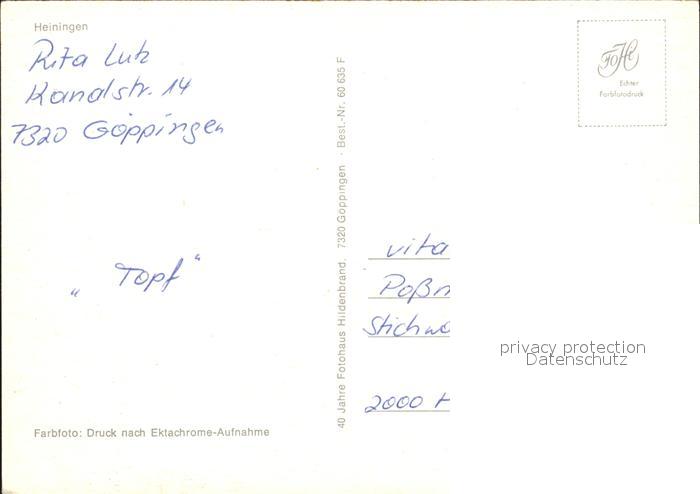 Heiningen
Rita Lutz
Kanalstr. 14
7320 Göppingen
„ Topf “
Farbfoto: Druck nach Ektachrome-Aufnahme
40 Jahre Fotohaus Hildenbrand, 7320 Göppingen · Best.-Nr. 60 635 F
Echter
Farbfotodruck
vita
2000
privacy protection
Datenschutz